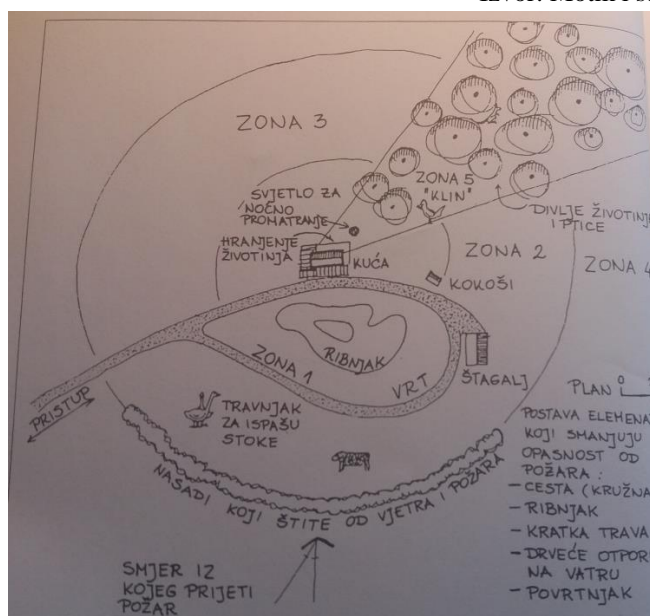 ZONA 3
ZONA 5
"KLIN"
SVJETLO ZA
NOĆNO
PROMATRANJE
HRANJENJE
ŽIVOTINJA
KUĆA
DIVLJE ŽIVOTINJE
I PTICE
ZONA 2
ZONA 4
KOKOŠI
RIBNJAK
ZONA 1
VRT
ŠTAGALJ
PRISTUP
TRAVNJAK
ZA ISPAŠU
STOKE
NASADI KOJI ŠTITE OD VJETRA I POŽARA
SMJER IZ
KOJEG PRIJETI
POŽAR
PLAN 0
POSTAVA ELEMENA
KOJI SMANJUJU
OPASNOST OD
POŽARA :
- CESTA (KRUŽNA
- RIBNJAK
- KRATKA TRAVA
- DRVEĆE OTPOR
NA VATRU
- POVRTNJAK